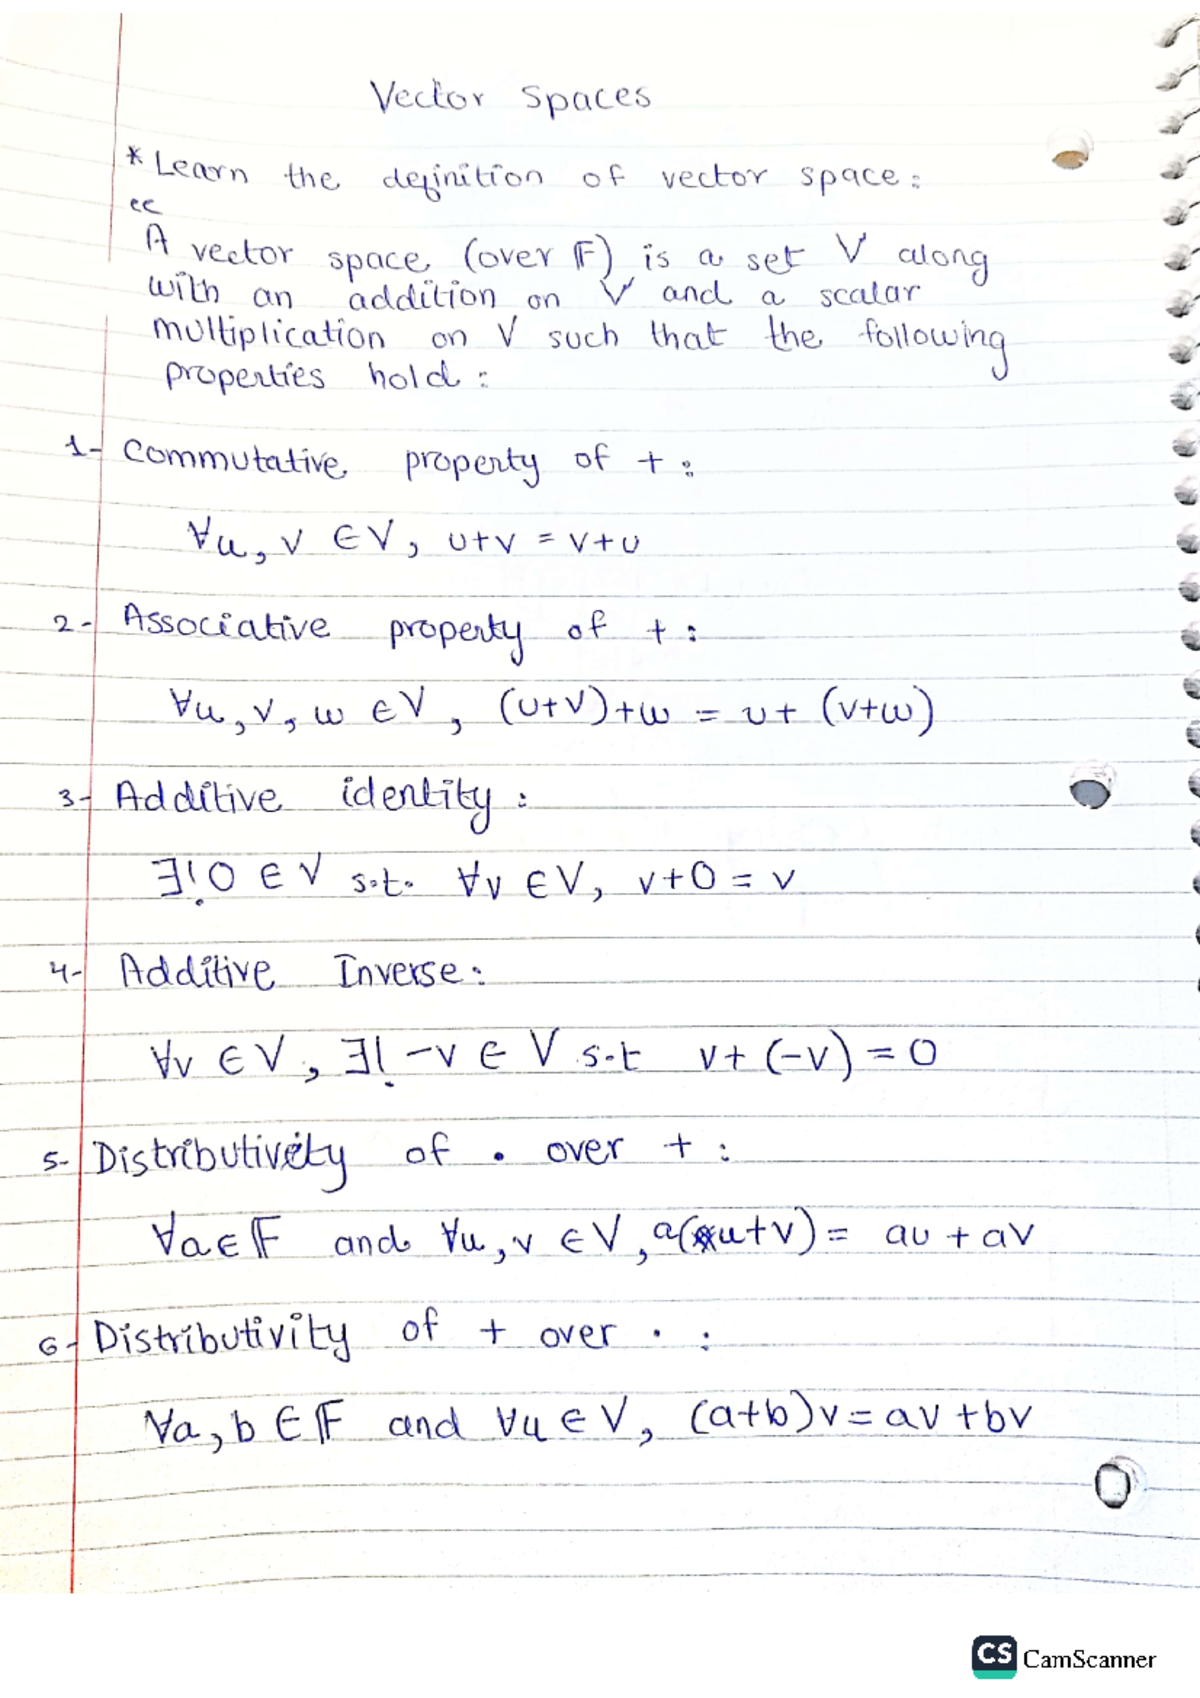 Vector Spaces
* Learn the definition of vector space:
"
A vector space (over 𝔽) is a set V along
with an addition on V and a scalar
multiplication on V such that the following
properties hold:
1- Commutative property of +:
∀u, v ∈ V, u+v = v+u
2- Associative property of +:
∀u, v, w ∈ V, (u+v)+w = u+ (v+w)
3- Additive identity:
∃! 0 ∈ V s.t. ∀v ∈ V, v+0 = v
4- Additive Inverse:
∀v ∈ V, ∃! -v ∈ V s.t v+ (-v) = 0
5- Distributivity of . over + :
∀a ∈ 𝔽 and ∀u, v ∈ V, a(u+v) = au + av
6- Distributivity of + over . :
∀a, b ∈ 𝔽 and ∀u ∈ V, (a+b)v = av + bv
CS CamScanner